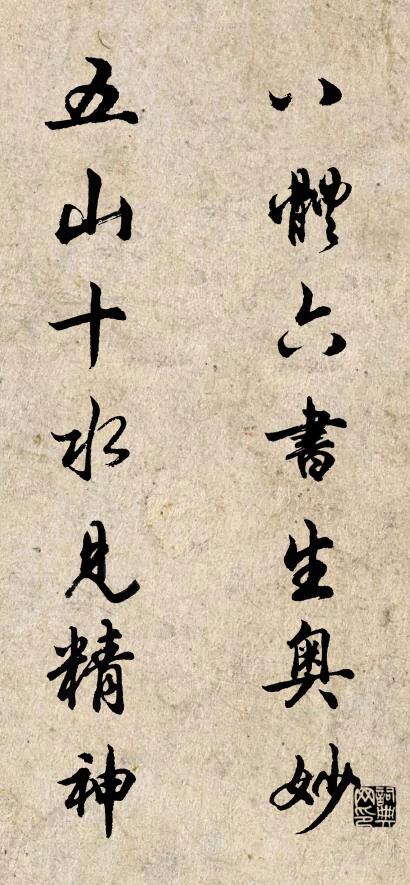 八體六書生奥妙
五山十水見精神
詞典網印